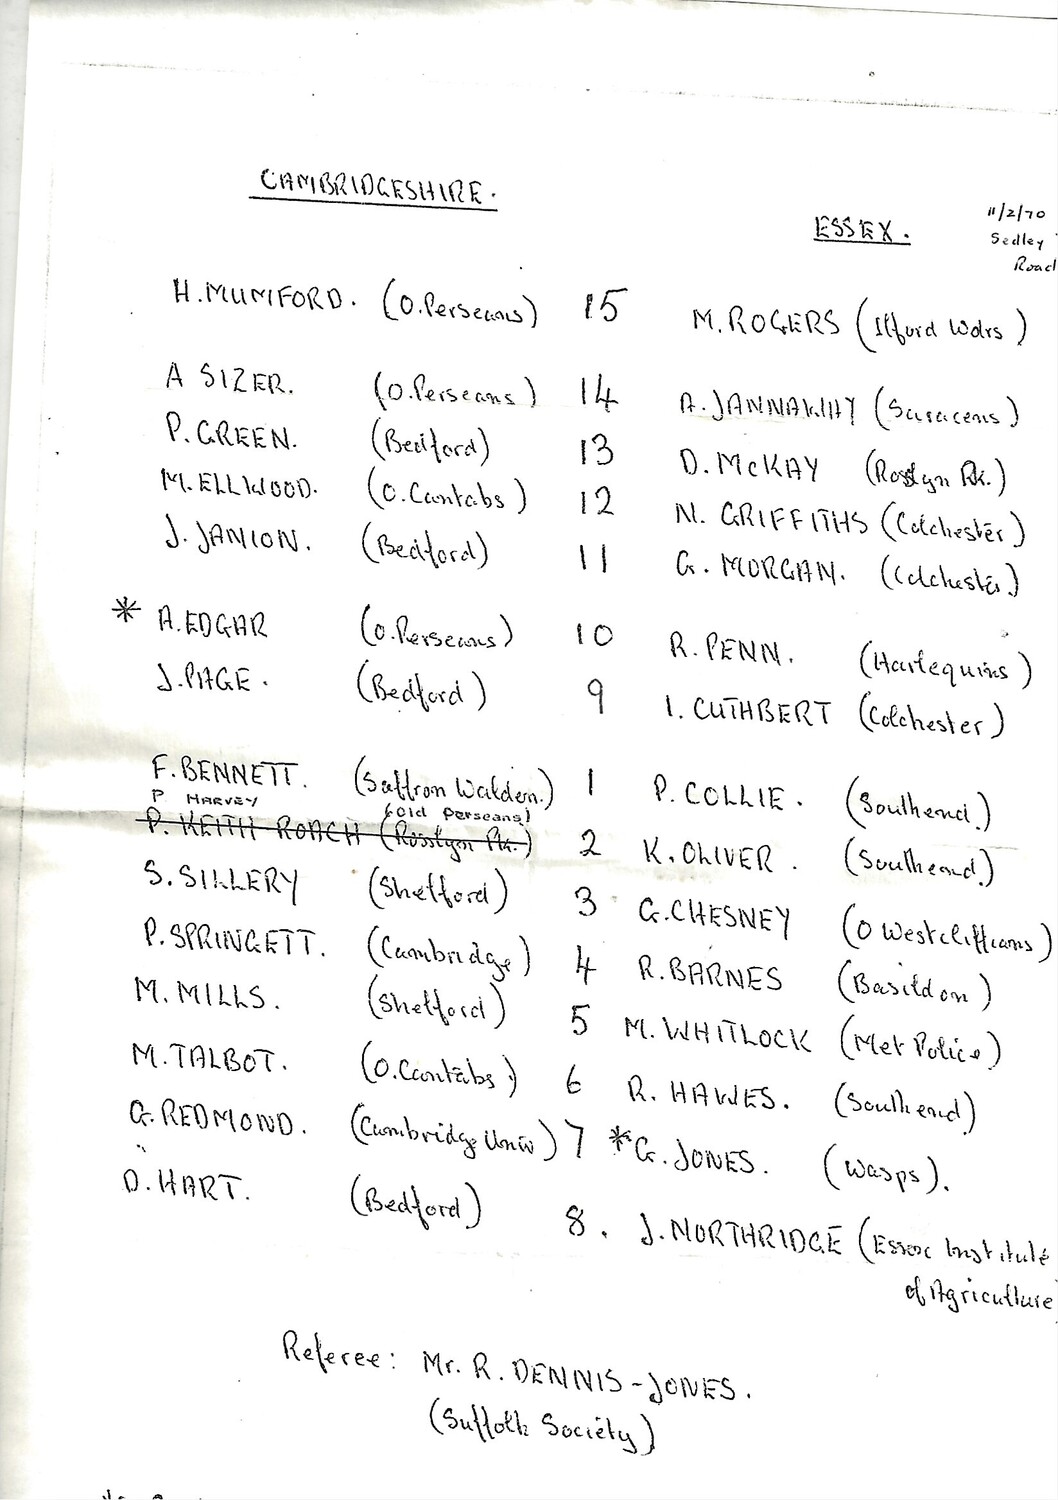 CAMBRIDGESHIRE.
ESSEX.
11/2/70
Sedley
Road
H. MUMFORD. (O. Perseans) 15 M. ROGERS (Ilford Wdrs)
A SIZER. (O. Perseans) 14 A. JANNAWAY (Saracens)
P. GREEN. (Bedford) 13 D. McKAY (Rosslyn Pk.)
M. ELLWOOD. (O. Cantabs) 12 N. GRIFFITHS (Colchester)
J. JANION. (Bedford) 11 G. MORGAN. (Colchester)
* A. EDGAR (O. Perseans) 10 R. PENN. (Harlequins)
J. PAGE. (Bedford) 9 I. CUTHBERT (Colchester)
F. BENNETT. (Saffron Walden.) 1 P. COLLIE. (Southend.)
P HARVEY (Old Perseans)
P. KEITH ROACH (Rosslyn Pk.) 2 K. OLIVER. (Southend.)
S. SILLERY (Shelford) 3 G. CHESNEY (O Westcliffians)
P. SPRINGETT. (Cambridge) 4 R. BARNES (Basildon)
M. MILLS. (Shelford) 5 M. WHITLOCK (Met Police)
M. TALBOT. (O. Cantabs) 6 R. HAWES. (Southend)
G. REDMOND. (Cambridge Univ) 7 * G. JONES. (Wasps).
D. HART. (Bedford) 8. J. NORTHRIDGE (Essex Institute
of Agriculture
Referee: Mr. R. DENNIS-JONES.
(Suffolk Society)